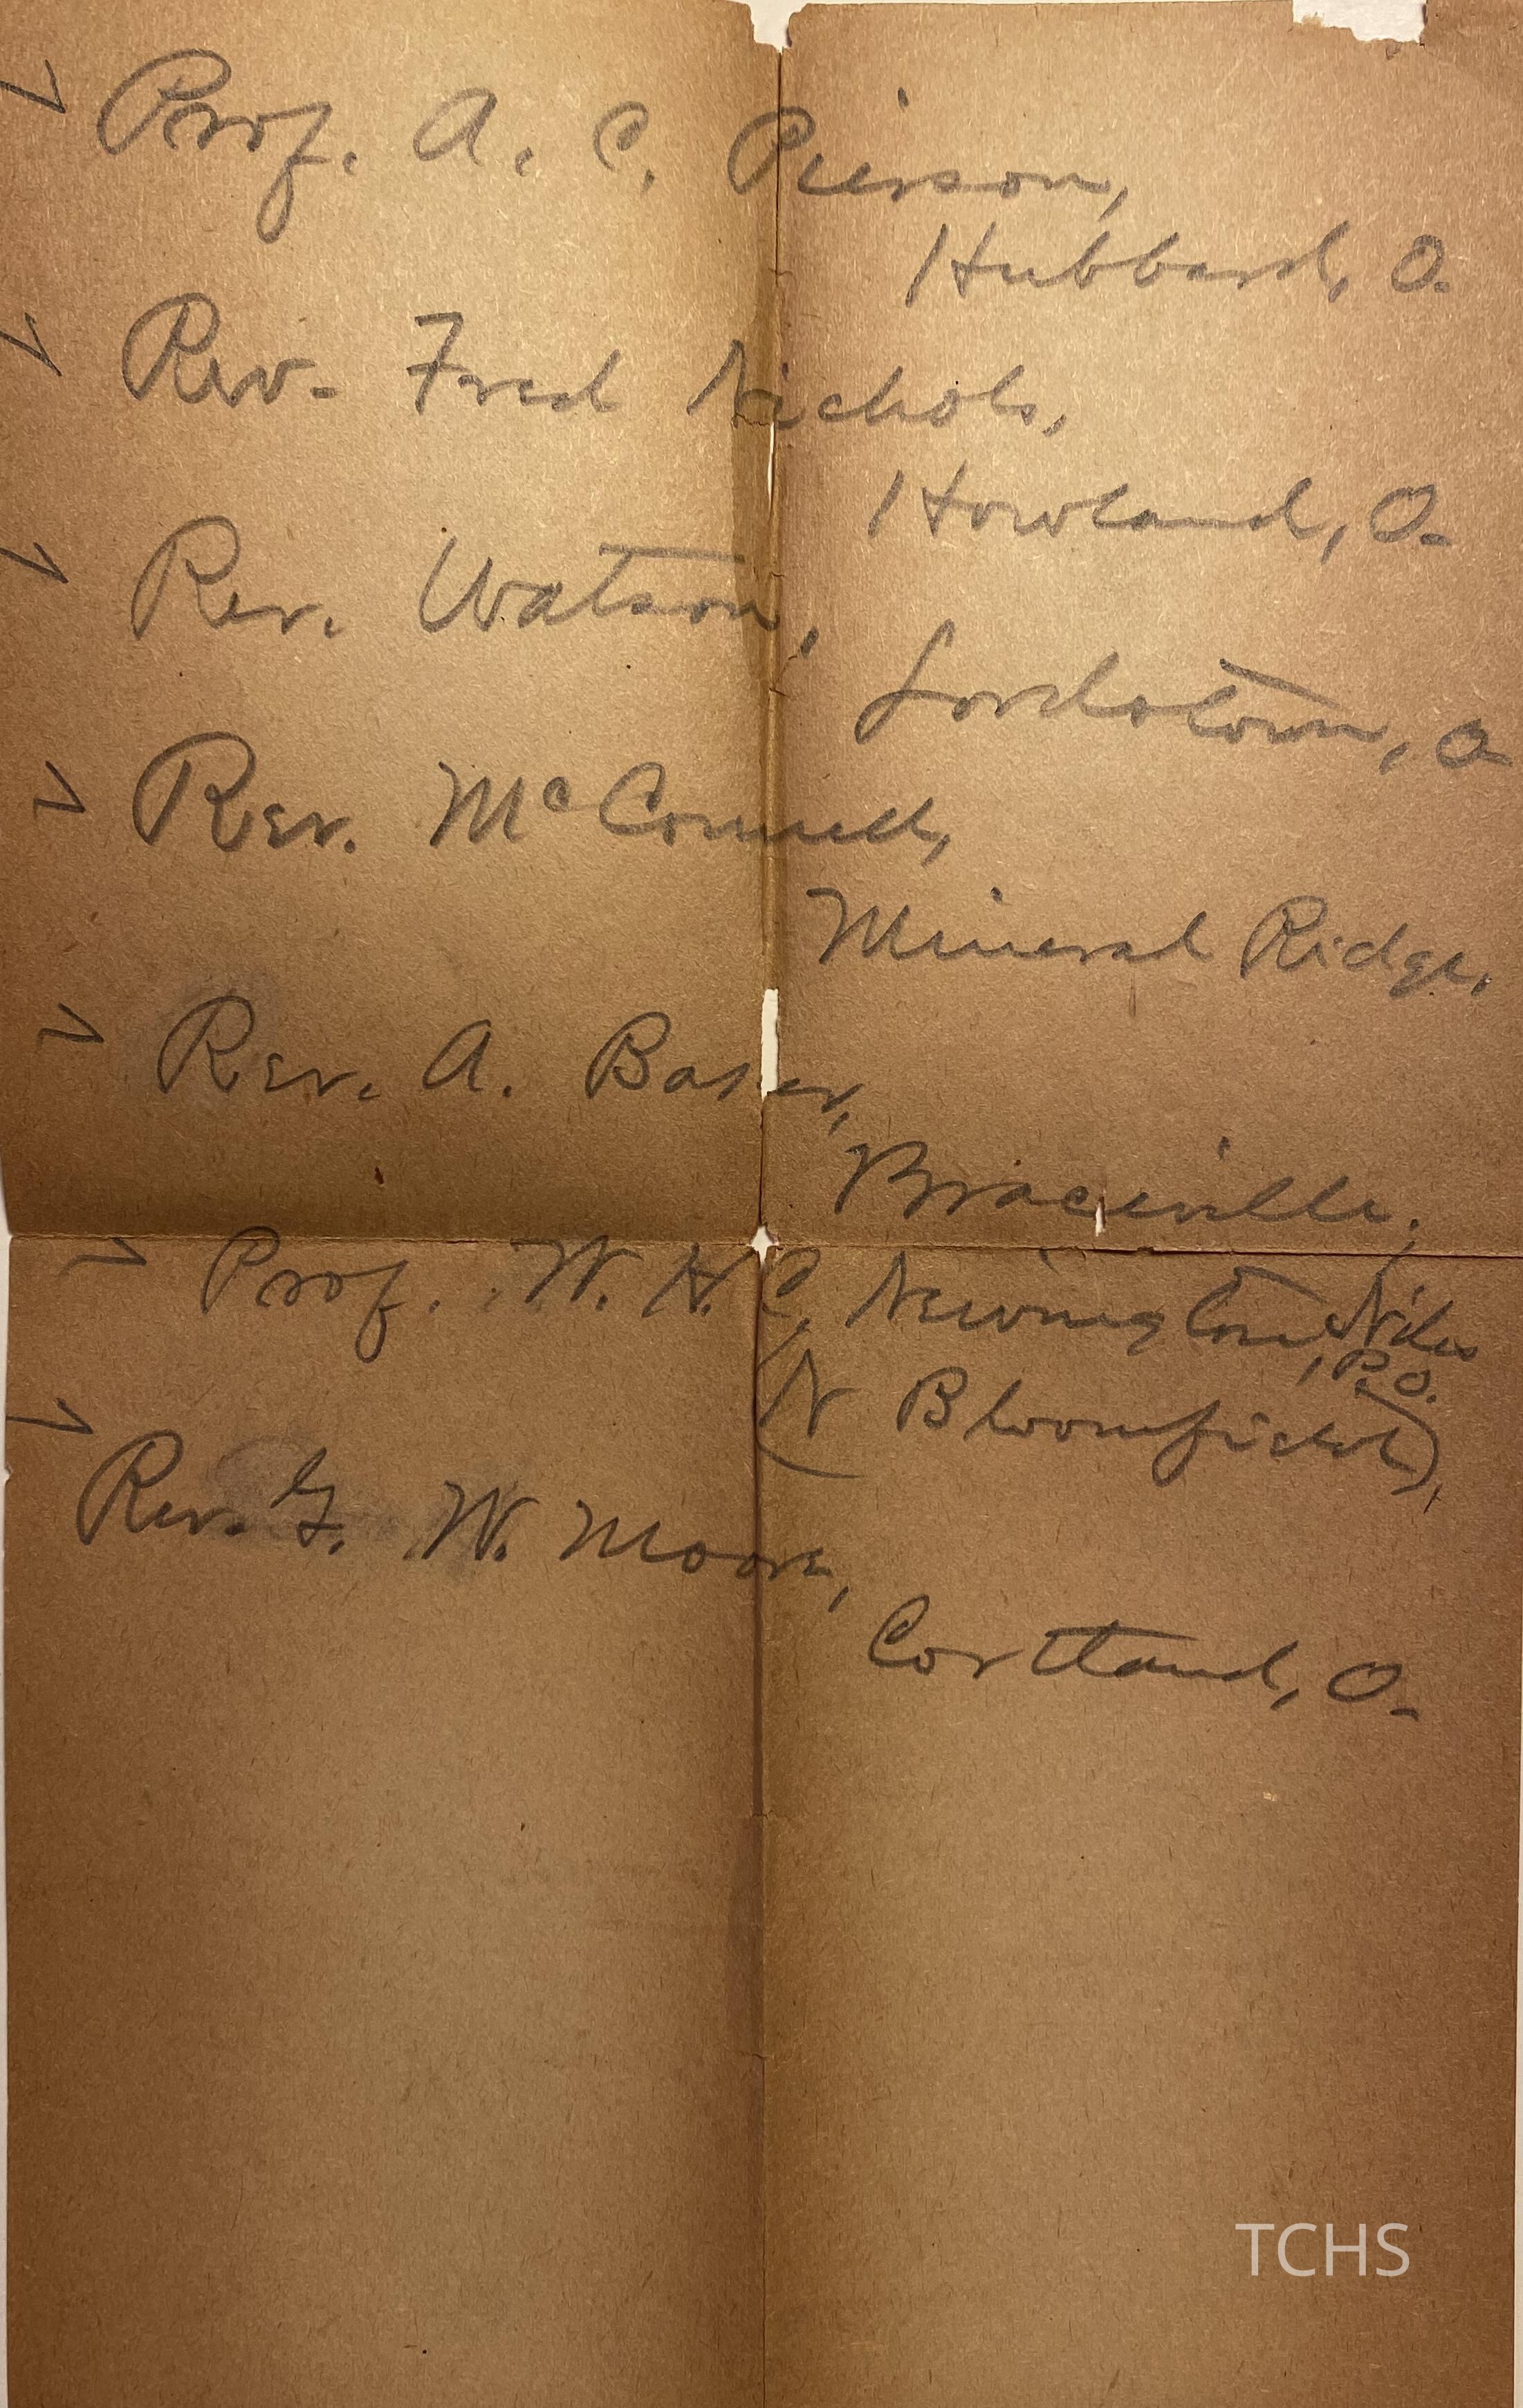 ✓ Prof. A. C. Pierson,
Hubbard, O.
✓ Rev. Fred Nichols,
Howland, O.
✓ Rev. Watson,
Lordstown, O
✓ Rev. McConnell,
Mineral Ridge,
✓ Rev. A. Baker,
Braceville,
✓ Prof. W. H. C. Newington, Niles
P.O.
(N Bloomfield),
✓ Rev. G. W. Moore,
Cortland, O.
TCHS